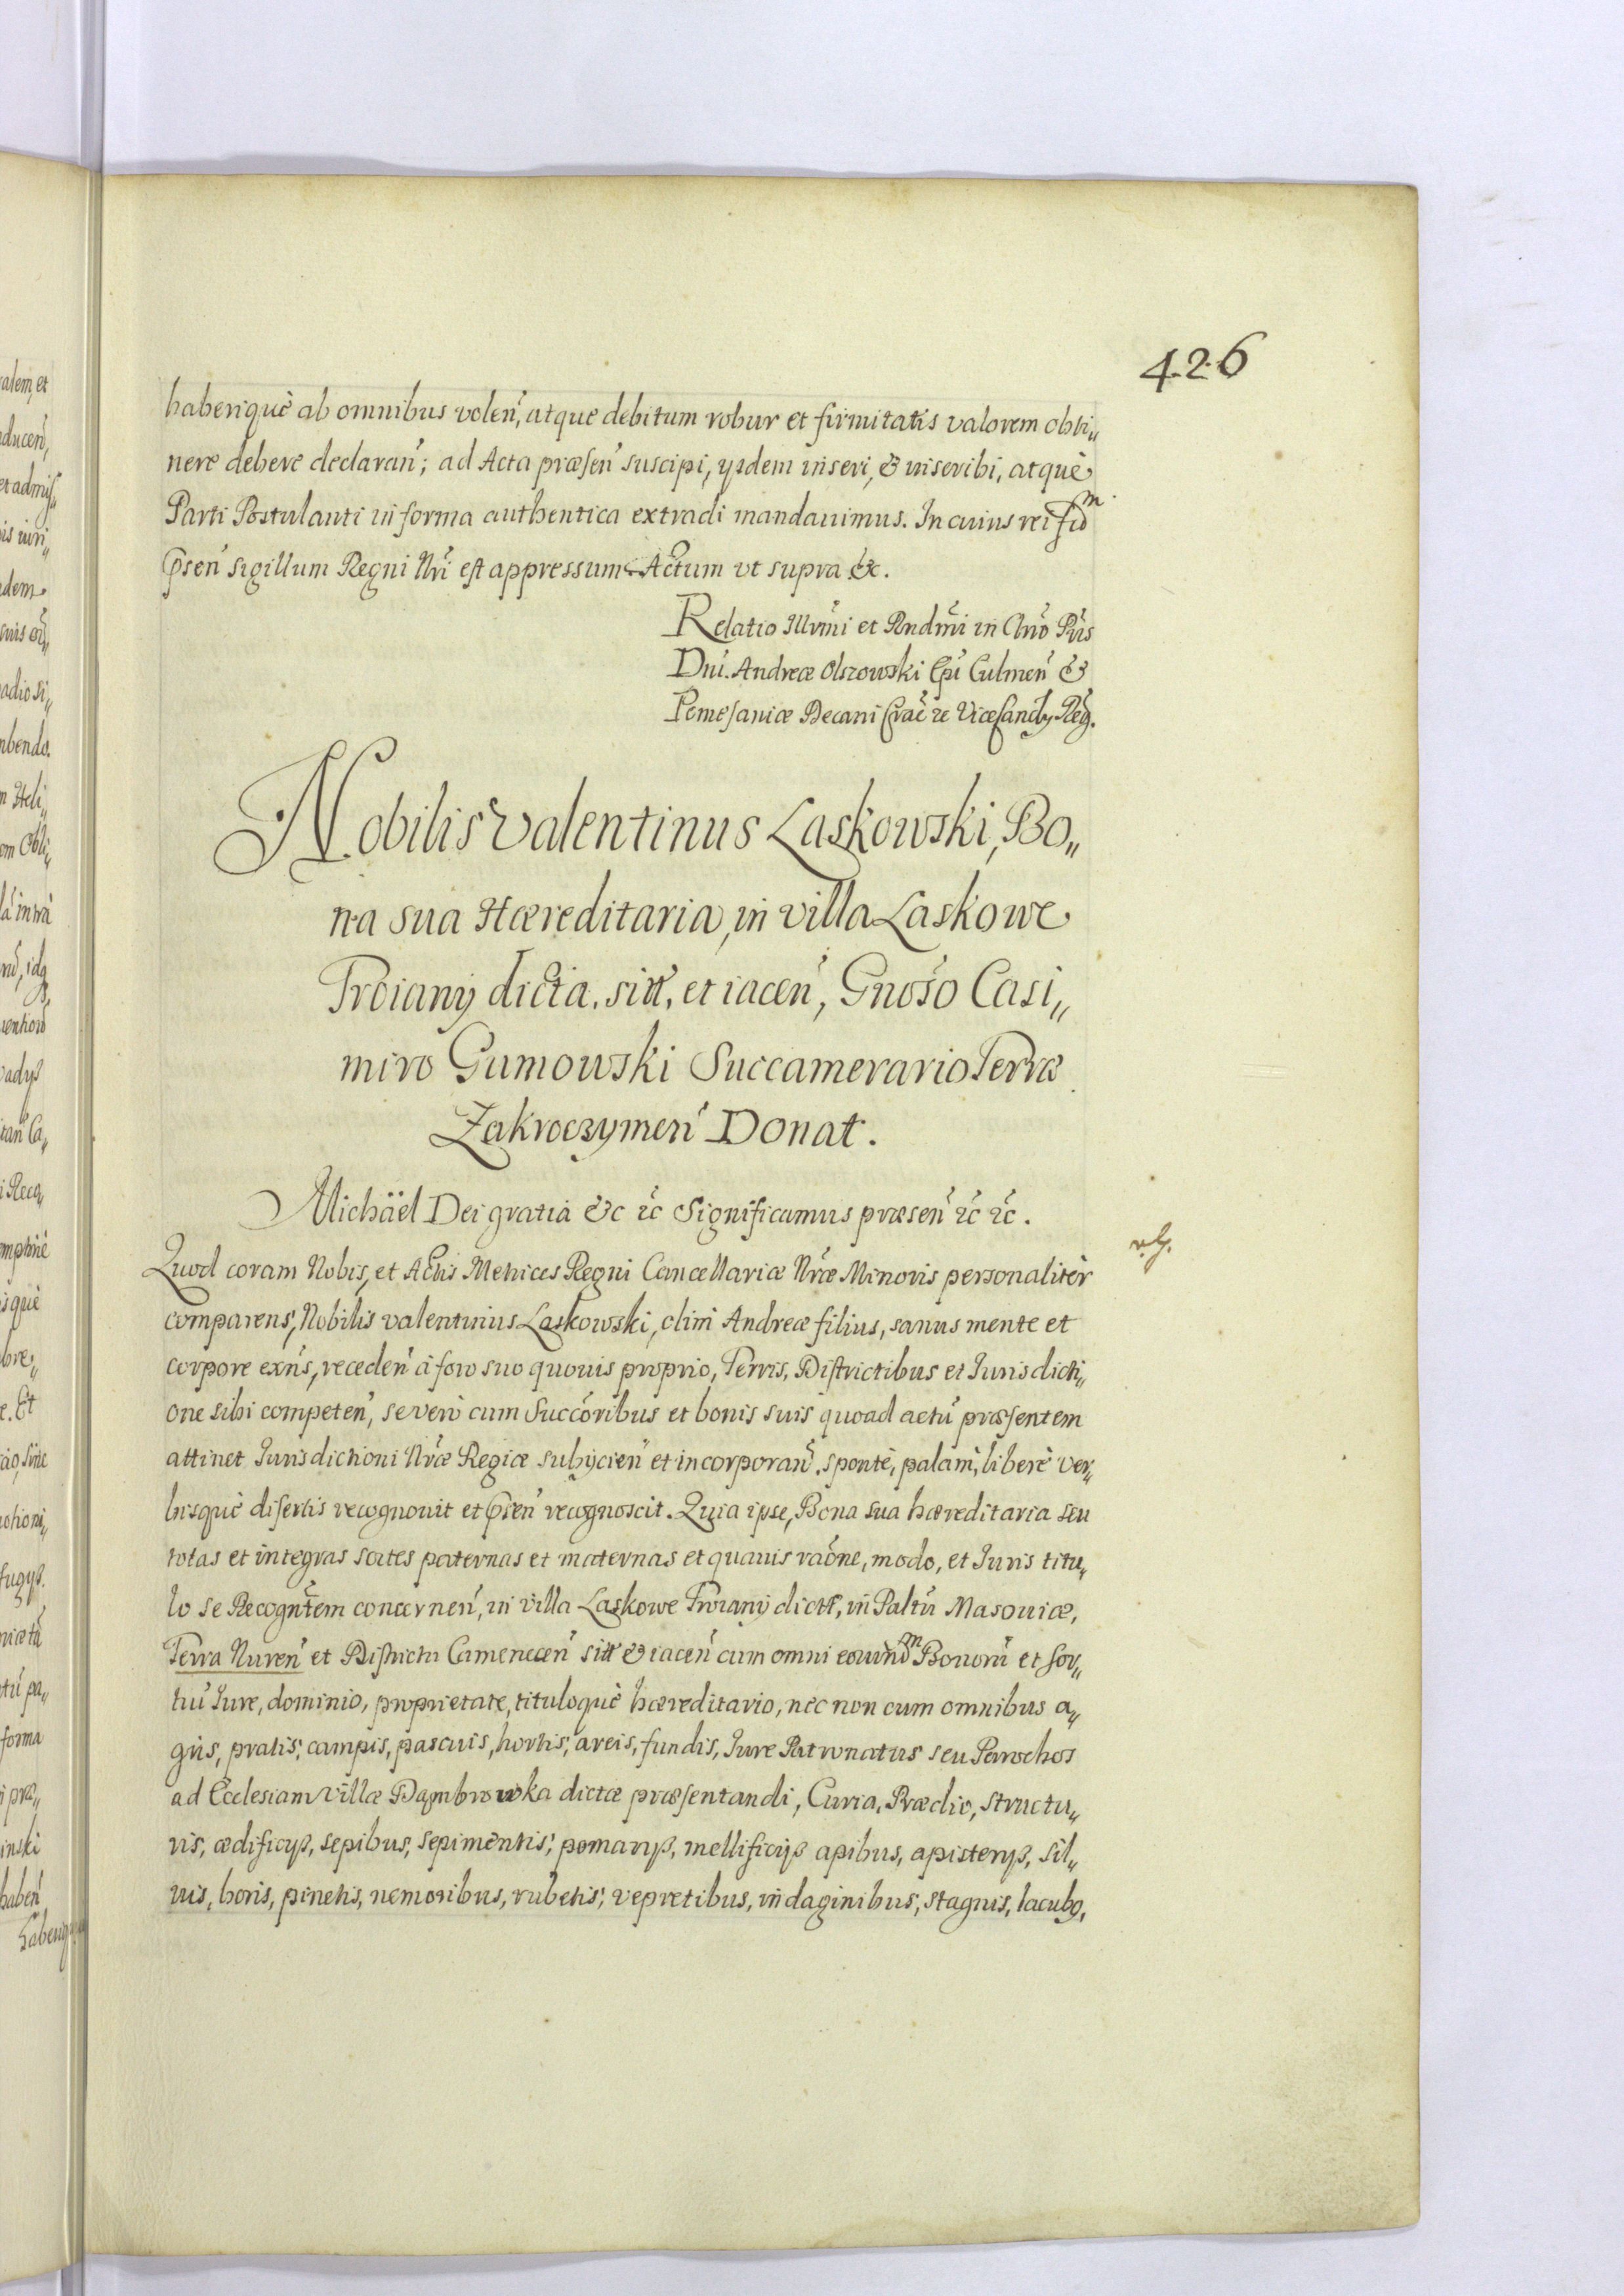 426
haberiquè ab omnibus volen̄, atque debitum robur et firmitatis valorem obti„
nere debere declaran̄; ad Acta præsen̄ suscipi, ijsdem inseri, & inscribi, atquè
Parti Postulanti in forma authentica extradi mandauimus. In cuius rei fid̄m.
P̄sen̄ sigillum Regni Nr̄i est appressum. Actum vt supra &c.
Relatio Illvmi et Rndm̄i in Chr̄o Pr̄is
Dn̄i. Andreæ Olszowski Ep̄i Culmen̄ &
Pomesaniæ Decani Crac̄ &c ViceCanc̄ry Reḡ.
Nobilis Valentinus Laskowski, Bo„
na sua Hæreditaria, in villa Laskowe
Troiany dicta. sitt, et iacen̄, Gnoso Casi„
miro Gumowski Succamerario Terræ
Zakroczymen̄ Donat.
Michäel Dei gratia &c &c Significamus præsen̄ &c &c.
Quod coram Nobis, et Actis Metrices Regni Cancellariæ Nr̄æ Minoris personalitèr
comparens, Nobilis valentinus Laskowski, olim Andreæ filius, sanus mente et
corpore exn̄s, receden̄ à foro suo quouis proprio, Terris, Districtibus et Iurisdicti„
one sibi competen̄, se verò cum Succoribus et bonis suis quoad actū præsentem
attinet Iurisdictioni Nr̄æ Regiæ subijcien̄ et incorporan̄. spontè, palam, liberè ver„
bisquè disertis recognouit et p̄sen̄ recognoscit. Quia ipse, Bona sua hæreditaria seu
totas et integras sortes paternas et maternas et quauis raōne, modo, et Iuris titu„
lo se Recogn̄tem concernen̄, in villa Laskowe Troiany dictt, in Paltū Masouiæ,
Terra Nuren̄ et Districtu Camenecen̄ sitt & iacen̄ cum omni eorundm̄ Bonorū et sor„
tiū Iure, dominio, proprietate, tituloquè hæreditario, nec non cum omnibus a„
gris, pratis, campis, pascuis, hortis, areis, fundis, Iure Patronatus seu Parochos
ad Ecclesiam villæ Dąmbrowka dictæ præsentandi, Curia, Prædio, structu„
ris, ædificijs, sepibus, sepimentis, pomarijs, mellificijs apibus, apisterijs, sil„
uis, boris, pinetis, nemoribus, rubetis, vepretibus, indaginibus, stagnis, lacubꝫ,